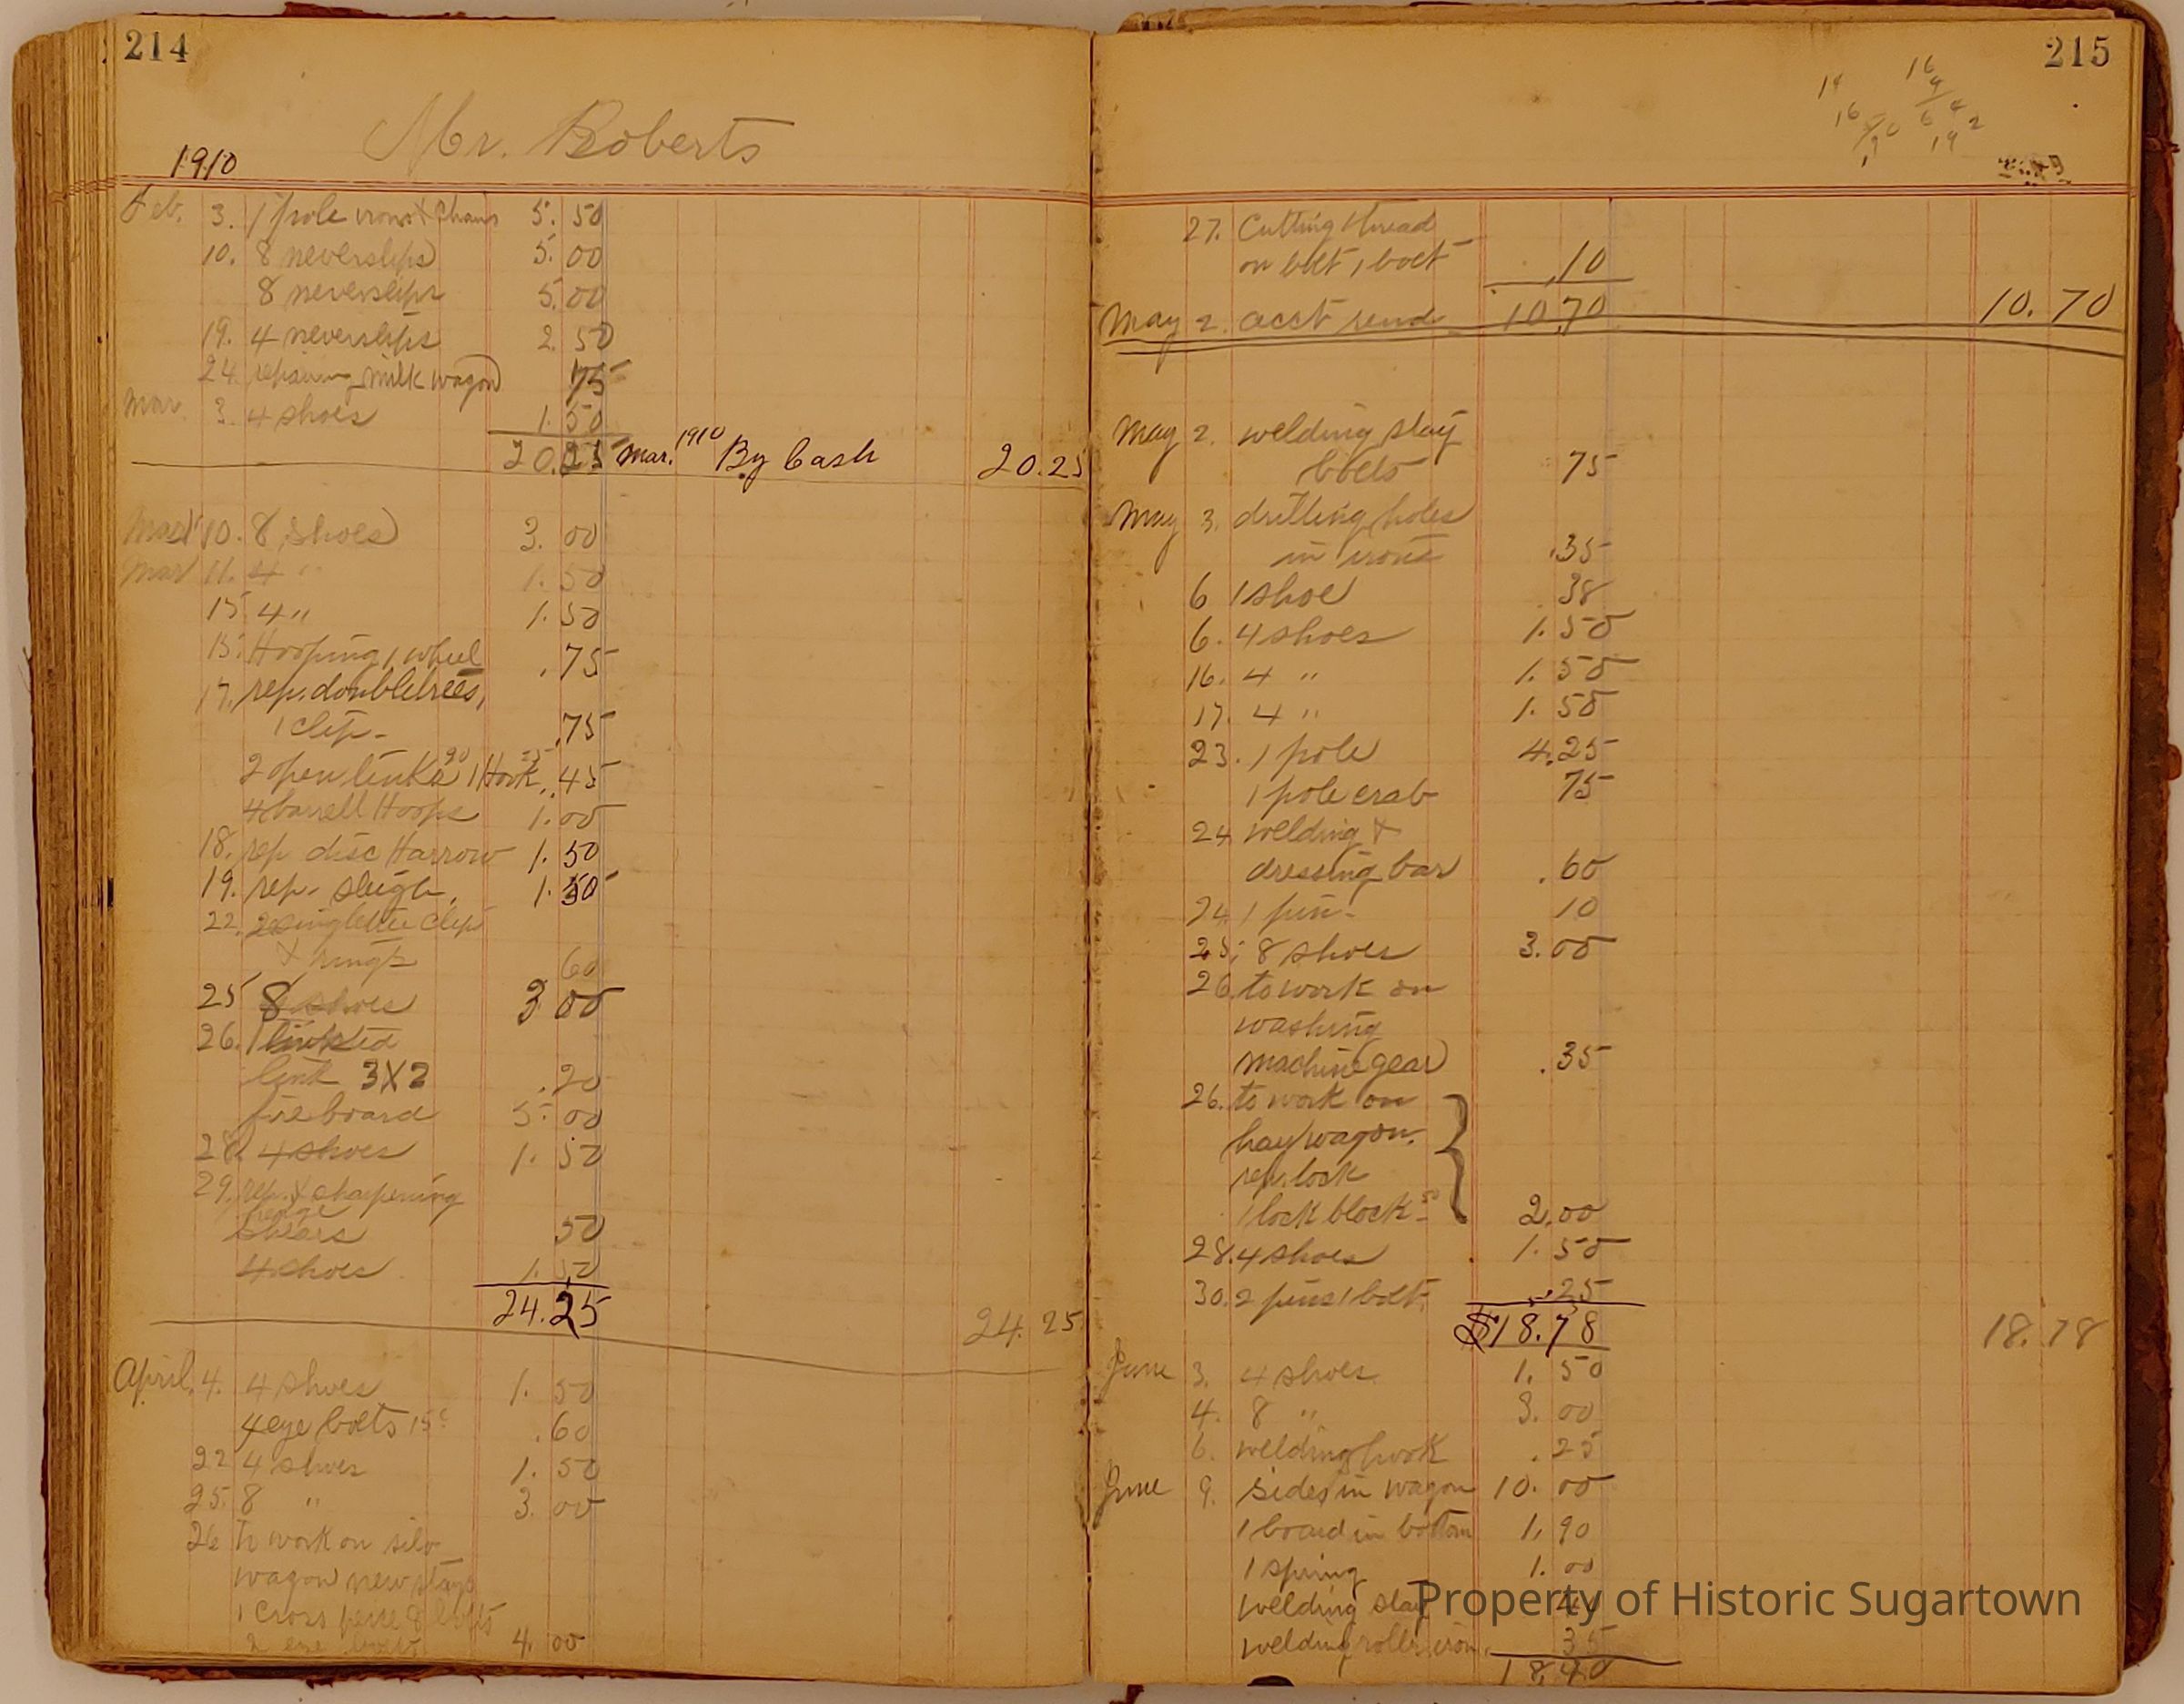 214
Mr. Roberts
1910
Feb. 3. 1 pole irons & chains 5.50
10. 8 neverslips 5.00
8 neverslips 5.00
19. 4 neverslips 2.50
24 repairing milk wagon 75
Mar. 3. 4 shoes 1.50
20.25 Mar. 1910 By Cash 20.25
Mar 10. 8 shoes 3.00
Mar 11. 4 " 1.50
15. 4 " 1.50
15. Hooping 1 wheel .75
17. rep. doubletrees,
1 clip - .75
2 open links 20 1 Hook 25 .45
4 barrell Hoops 1.00
18. rep disc Harrow 1.50
19. rep. sleigh. 1.50
22. 2 singletree clips
& rings 60
25 8 shoes 3 00
26. 1
link 3X2 .20
fireboard 5.00
28. 4 shoes 1.50
29. rep. & sharpening
hedge
shears 50
4 shoes 1.50
24.25
24.25
April. 4. 4 shoes 1.50
4 eye bolts 15c .60
22 4 shoes 1.50
25. 8 " 3.00
26 to work on silo
wagon new stays
1 cross piece 8 bolts
2 eye bolts 4.00
215
14 16
16 4
27. Cutting thread
on bolt, 1 bolt .10
May 2. acct rend 10.70 10.70
May 2. welding stay
bolts 75
May 3. drilling holes
in irons .35
6 1 shoe .38
6. 4 shoes 1.50
16. 4 " 1.50
17. 4 " 1.50
23. 1 pole 4.25
1 pole crab 75
24 welding &
dressing bar .60
24. 1 pin - 10
25. 8 shoes 3.00
26. to work on
washing
machine gear .35
26. to work on
hay wagon.
rep. lock
1 lock block - 50 2.00
28. 4 shoes 1.50
30. 2 pins 1 bolt. .25
$18.78 18.78
June 3. 4 shoes 1.50
4. 8 " 3.00
6. welding hook .25
June 9. sides in wagon 10.00
1 board in bottom 1.90
1 spring 1.00
welding stay 40
welding roller iron. 35
18.40
Property of Historic Sugartown